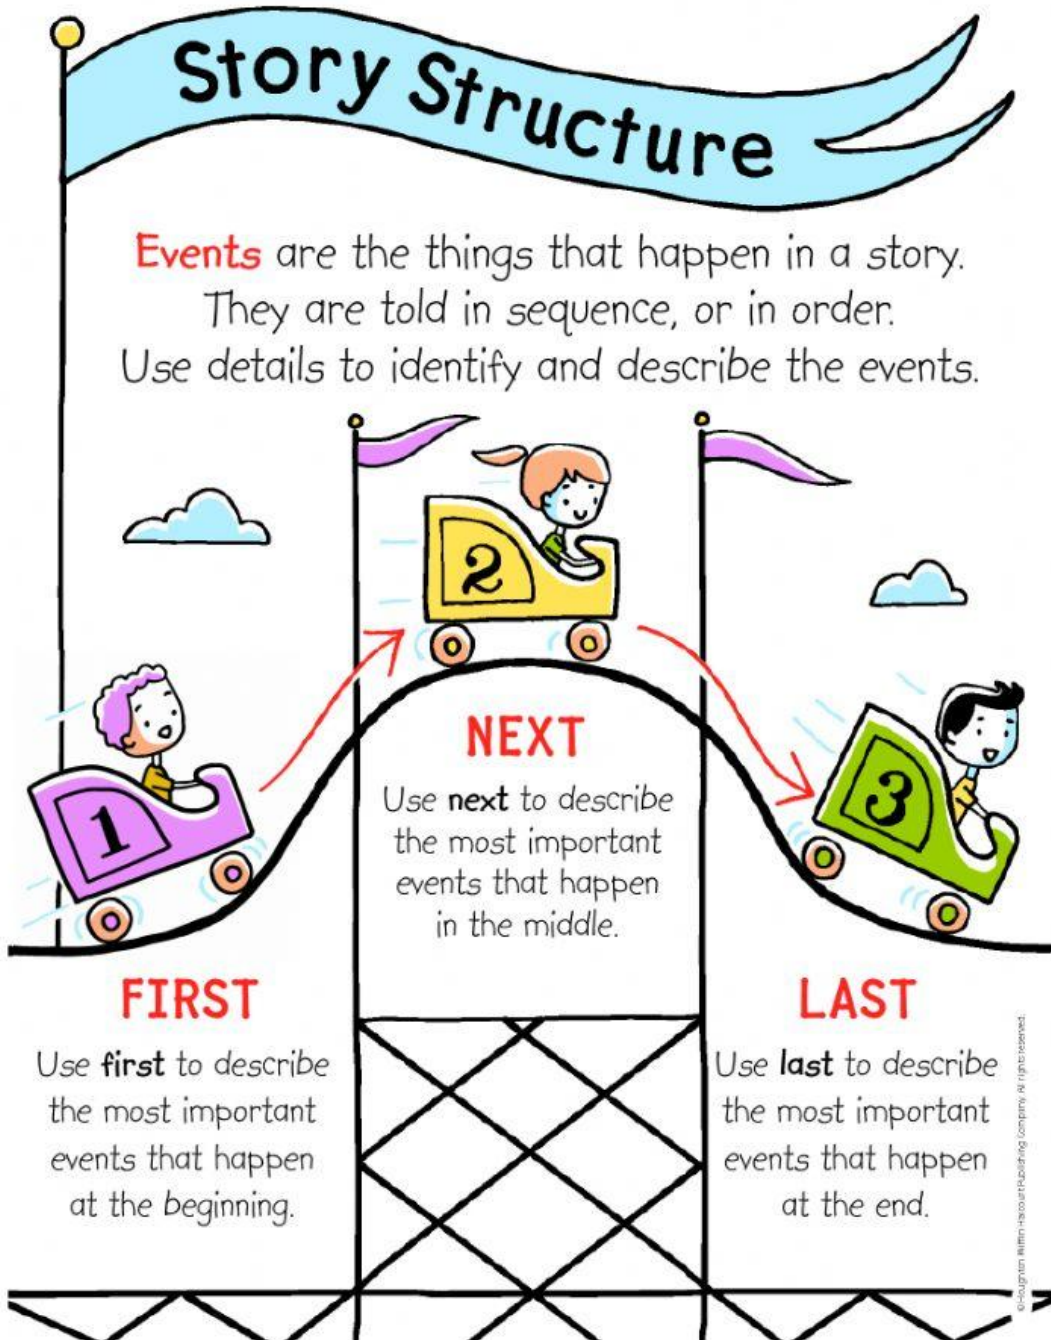 Story Structure
Events are the things that happen in a story.
They are told in sequence, or in order.
Use details to identify and describe the events.
1
2
3
FIRST
Use first to describe
the most important
events that happen
at the beginning.
NEXT
Use next to describe
the most important
events that happen
in the middle.
LAST
Use last to describe
the most important
events that happen
at the end.
© Houghton Mifflin Harcourt Publishing Company. All rights reserved.